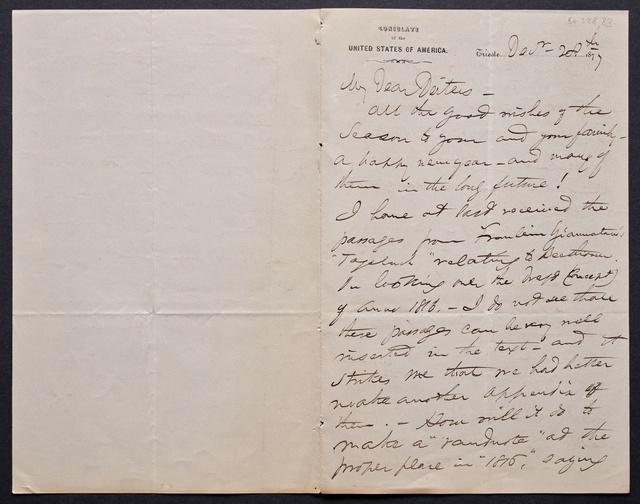 CONSULATE
of the
UNITED STATES OF AMERICA.
Trieste, Decr. 28th 1877
My Dear Deiters —
All the good wishes of the
Season to you and your family —
a happy new year — and many of
them in the long future!
I have at last received the
passages from Fraulein Giannatasio's
"Tagebuch" relating to Beethoven.
In looking over the Mspt (Concept)
of Anno 1816. — I do not see that
these passages can be very well
inserted in the text — and it
strikes me that we had better
make another appendix of
them. — How will it do to
make a "randnote" at the
proper place in "1816," saying